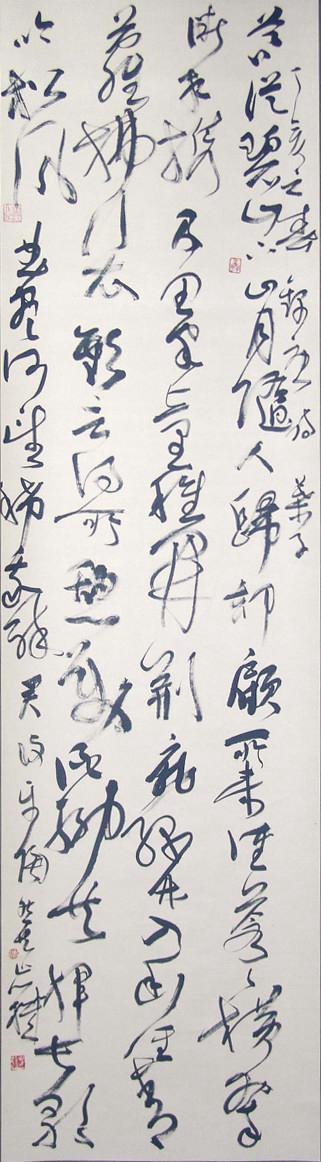 丁亥之春
暮從碧山下山月隨人歸却顧所來徑蒼蒼橫翠
微相攜及田家童稚開荊扉綠竹入幽徑青
蘿拂行衣歡言得所憩美酒聊共揮長歌
吟松風曲盡河星稀我醉君復樂陶然共忘機